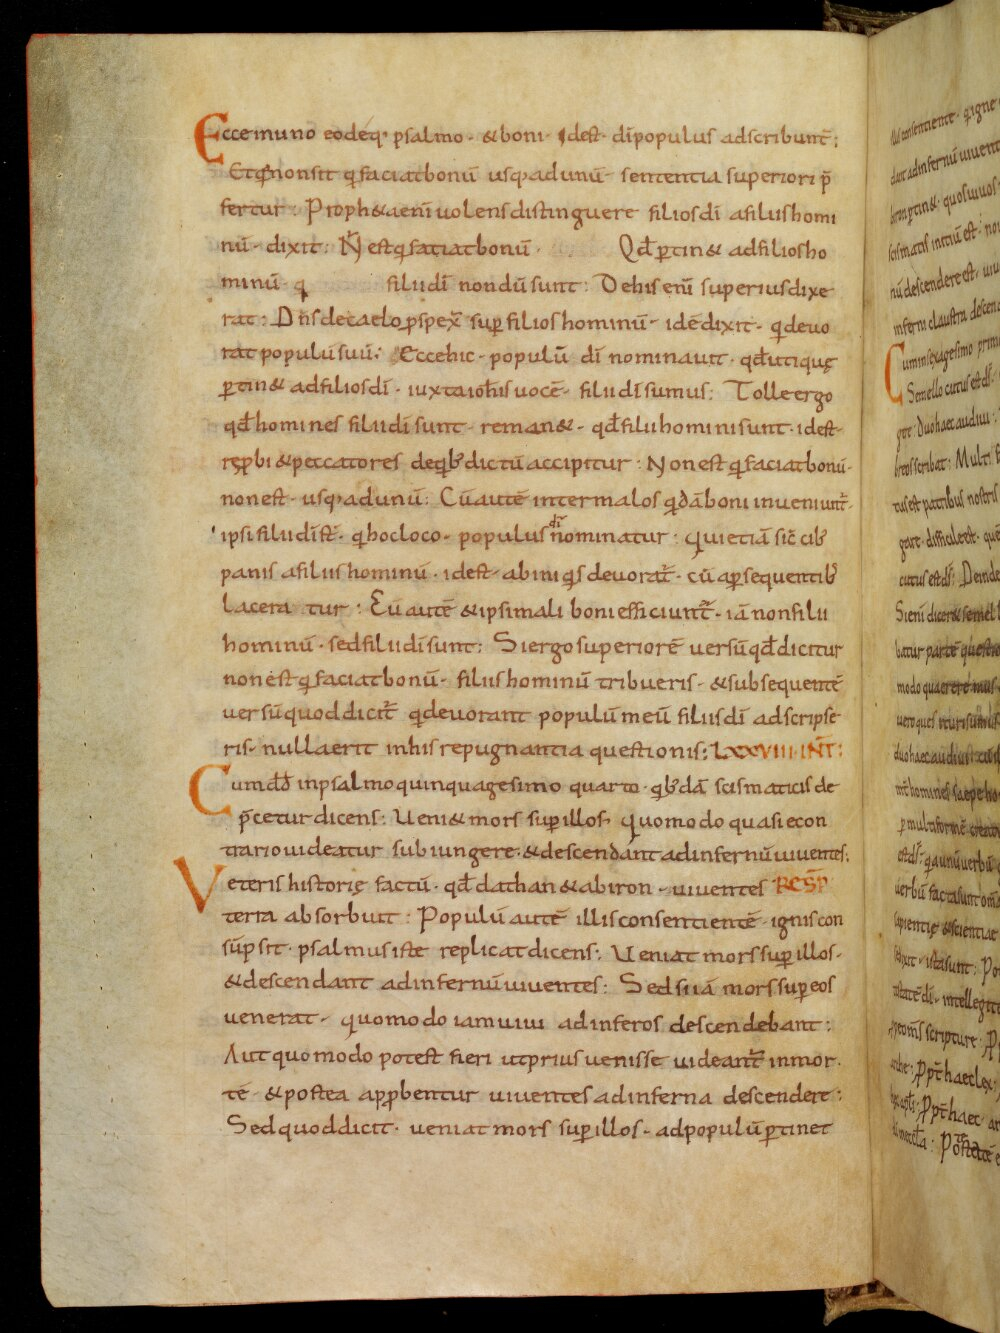 Ecce in uno eodeq; psalmo · & boni · idest · dī populus adscribunt̄ ;
Et qđ non sit q̇ faciat bonū usq; ad unū · sententia superiori p̄
fertur · Proph&a eni uolens distinguere filios dī a filiis homi
nū · dixit : N̄ est q̇ faciat bonū · Qd̄ ꝑtin& ad filios ho
minū · q̇ filii dī nondū sunt : De his enī superius dixe
rat : Dn̄s de caelo ꝓspex̄ suꝑ filios hominū · idē dixit · q̇ deuo
rat populū suū ; Ecce hic · populū dī nominauit · qd̄ utiquę
ꝑtin& ad filios dī · iuxta ioħis uocē · filii dī sumus : Tolle ergo
qd̄ homines filii dī sunt · reman& · qd̄ filii hominis unt · idest
reꝓbi & peccatores de qb; dictū accipitur : Non est q̇ faciat bonū ·
non est · usq; ad unū : Cū autē inter malos q̇dā boni inueniunt̄ ·
ipsi filii dī st̄ · q̇ hoc loco · populus nominatur : qui etiā sic̄ cib;
panis a filiis hominū · idest · ab iniq̇s deuorat̄ · cū a ꝑsequentib;
lacera tur : Cū autē & ipsi mali boni efficiunt̄ · iā non filii
hominū · sed filii dī sunt : Si ergo superiorē uersū qd̄ dicitur
non est q̇ faciat bonū · filiis hominū tribueris · & subsequentē
uersū quod dicit̄ q̇ deuorant populū meū filiis dī adscripse
ris · nulla erit in his repugnantia questionis ; LXXVIII · INT̄ :
Cum dd̄ in psalmo quinquagesimo quarto · qb; dā scismaticis de
p̄cetur dicens : Ueni& mors suꝑ illos · quomodo quasi econ
trario uideatur subiungere · & descendant ad infernū uiuentes ;
Veteris historię factū · qd̄ dathan & abiron · uiuentes RESP̄
terra absorbuit : Populū autē illis consentientē · ignis con
sūpsit · psalmus iste replicat dicens ; Ueniat mors suꝑ illos ·
& descendant ad infernū uiuentes : Sed si iā mors suꝑ eos
uenerat · quomodo iam uiui ad inferos descendebant :
Aut quomodo potest fieri ut prius uenisse uideant̄ in mor
tē · & postea aꝓbentur uiuentes ad inferna descendere :
Sed quod dicit · ueniat mors suꝑ illos · ad populū ꝑtinet